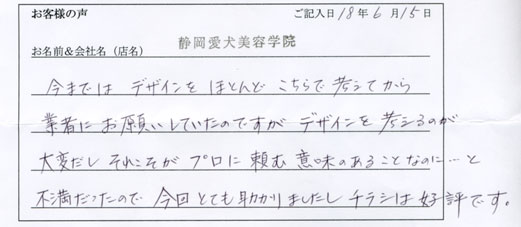 お客様の声 ご記入日 18年 6月 15日
お名前&会社名(店名) 静岡愛犬美容学院
今までは デザインを ほとんど こちらで考えてから
業者に お願いしていたのですが デザインを 考えるのが
大変だし それこそが プロに 頼む 意味のあることなのに…と
不満だったので 今回とても助かりましたし チラシは好評です。